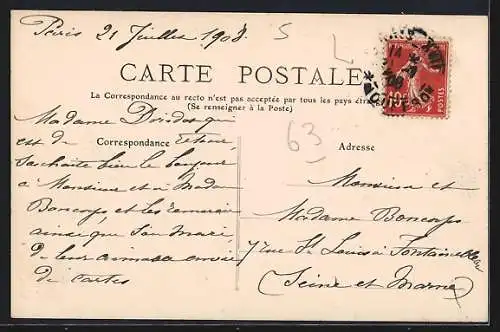 Paris 21 Juillet 1908
5
CARTE POSTALE
La Correspondance au recto n'est pas acceptée par tous les pays
(Se renseigner à la Poste)
63
Correspondance
Adresse
Madame
est de
Souhaite bien le bonjour
à Monsieur et à Madame
Bancorps et les remercie
ainsi que son mari
de leur aimable envoi
de cartes
Monsieur et
Madame Bancorps
7 rue St Louis à Fontainebleau
(Seine et Marne)
10
POSTES